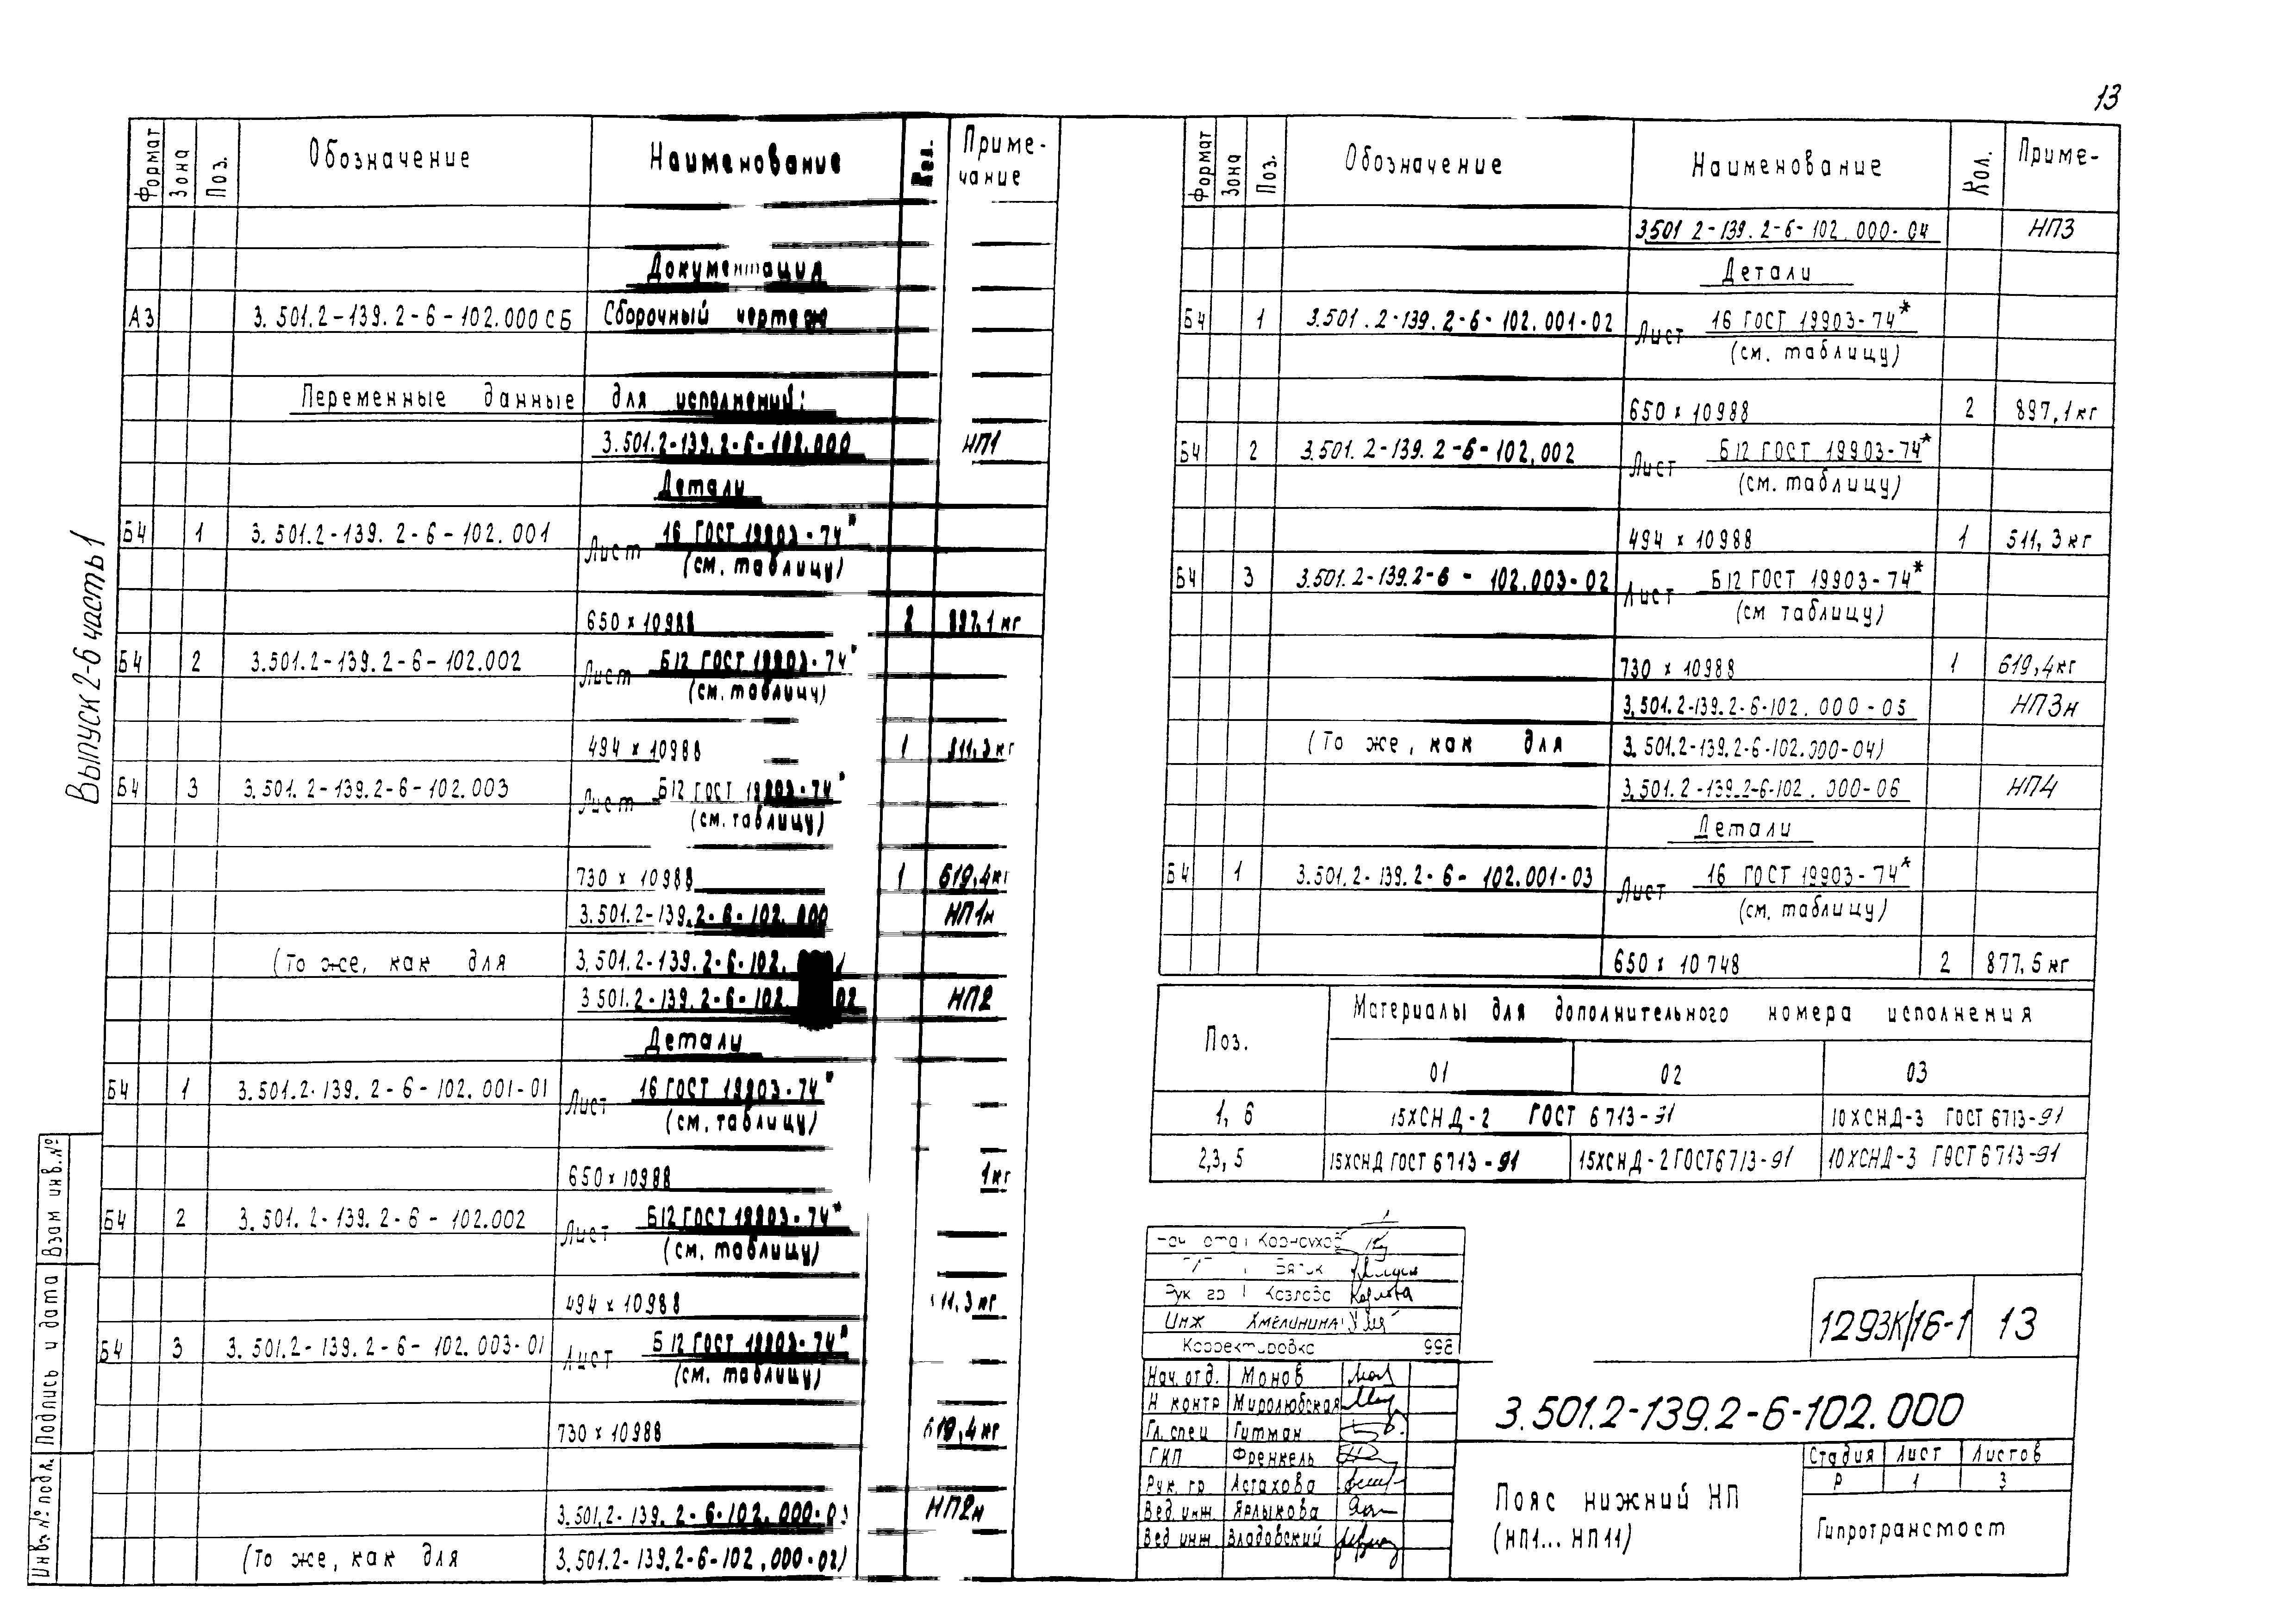 13
Выпуск 2-6 часть 1
Формат Зона Поз. Обозначение Наименование Кол. Примечание
Документация
А3 3.501.2-139.2-6-102.000 СБ Сборочный чертеж
Переменные данные для исполнений:
3.501.2-139.2-6-102.000 НП1
Детали
Б4 1 3.501.2-139.2-6-102.001 Лист 16 ГОСТ 19903-74*
(см. таблицу)
650 х 10988 2 897,1 кг
Б4 2 3.501.2-139.2-6-102.002 Лист Б12 ГОСТ 19903-74*
(см. таблицу)
494 х 10988 1
Б4 3 3.501.2-139.2-6-102.003 Лист Б12 ГОСТ 19903-74*
(см. таблицу)
730 х 10988 1 619,4 кг
3.501.2-139.2-6-102.000 НП1н
(То же, как для 3.501.2-139.2-6-102.
3.501.2-139.2-6-102. 02 НП2
Детали
Б4 1 3.501.2-139.2-6-102.001-01 Лист 16 ГОСТ 19903-74*
(см. таблицу)
650 х 10988 1 кг
Б4 2 3.501.2-139.2-6-102.002 Лист Б12 ГОСТ 19903-74*
(см. таблицу)
494 х 10988 11,3 кг
Б4 3 3.501.2-139.2-6-102.003-01 Лист Б12 ГОСТ 19903-74*
(см. таблицу)
730 х 10988 619,4 кг
3.501.2-139.2-6-102.000-03 НП2н
(То же, как для 3.501.2-139.2-6-102.000-02)
Взам инв. №
Подпись и дата
Инв. № подл.
Формат Зона Поз. Обозначение Наименование Кол. Приме-
3.501 2-139.2-6-102.000-04 НП3
Детали
Б4 1 3.501.2-139.2-6-102.001-02 Лист 16 ГОСТ 19903-74*
(см. таблицу)
650 х 10988 2 897,1 кг
Б4 2 3.501.2-139.2-6-102,002 Лист Б12 ГОСТ 19903-74*
(см. таблицу)
494 х 10988 1 511,3 кг
Б4 3 3.501.2-139.2-6-102.003-02 Лист Б12 ГОСТ 19903-74*
(см таблицу)
730 х 10988 1 619,4 кг
3.501.2-139.2-6-102.000-05 НП3н
(То же, как для 3.501.2-139.2-6-102.000-04)
3.501.2-139.2-6-102.000-06 НП4
Детали
Б4 1 3.501.2-139.2-6-102.001-03 Лист 16 ГОСТ 19903-74*
(см. таблицу)
650 х 10748 2 877,5 кг
Поз. Материалы для дополнительного номера исполнения
01 02 03
1, 6 15ХСНД-2 ГОСТ 6713-91 10ХСНД-3 ГОСТ 6713-91
2,3,5 15ХСНД ГОСТ 6713-91 15ХСНД-2 ГОСТ 6713-91 10ХСНД-3 ГОСТ 6713-91
Рук гр Козлова Козлова
Инж Хмелинина
Корректировка
1293К/16-1 13
Нач. отд. Монов
Н контр Миролюбская
Гл. спец Гитман
ГИП Френкель
Рук. гр. Астахова
Вед инж. Ярлыкова
Вед инж. Владовский
3.501.2-139.2-6-102.000
Пояс нижний НП
(НП1... НП11)
Стадия Лист Листов
Р 1 3
Гипротрансмост